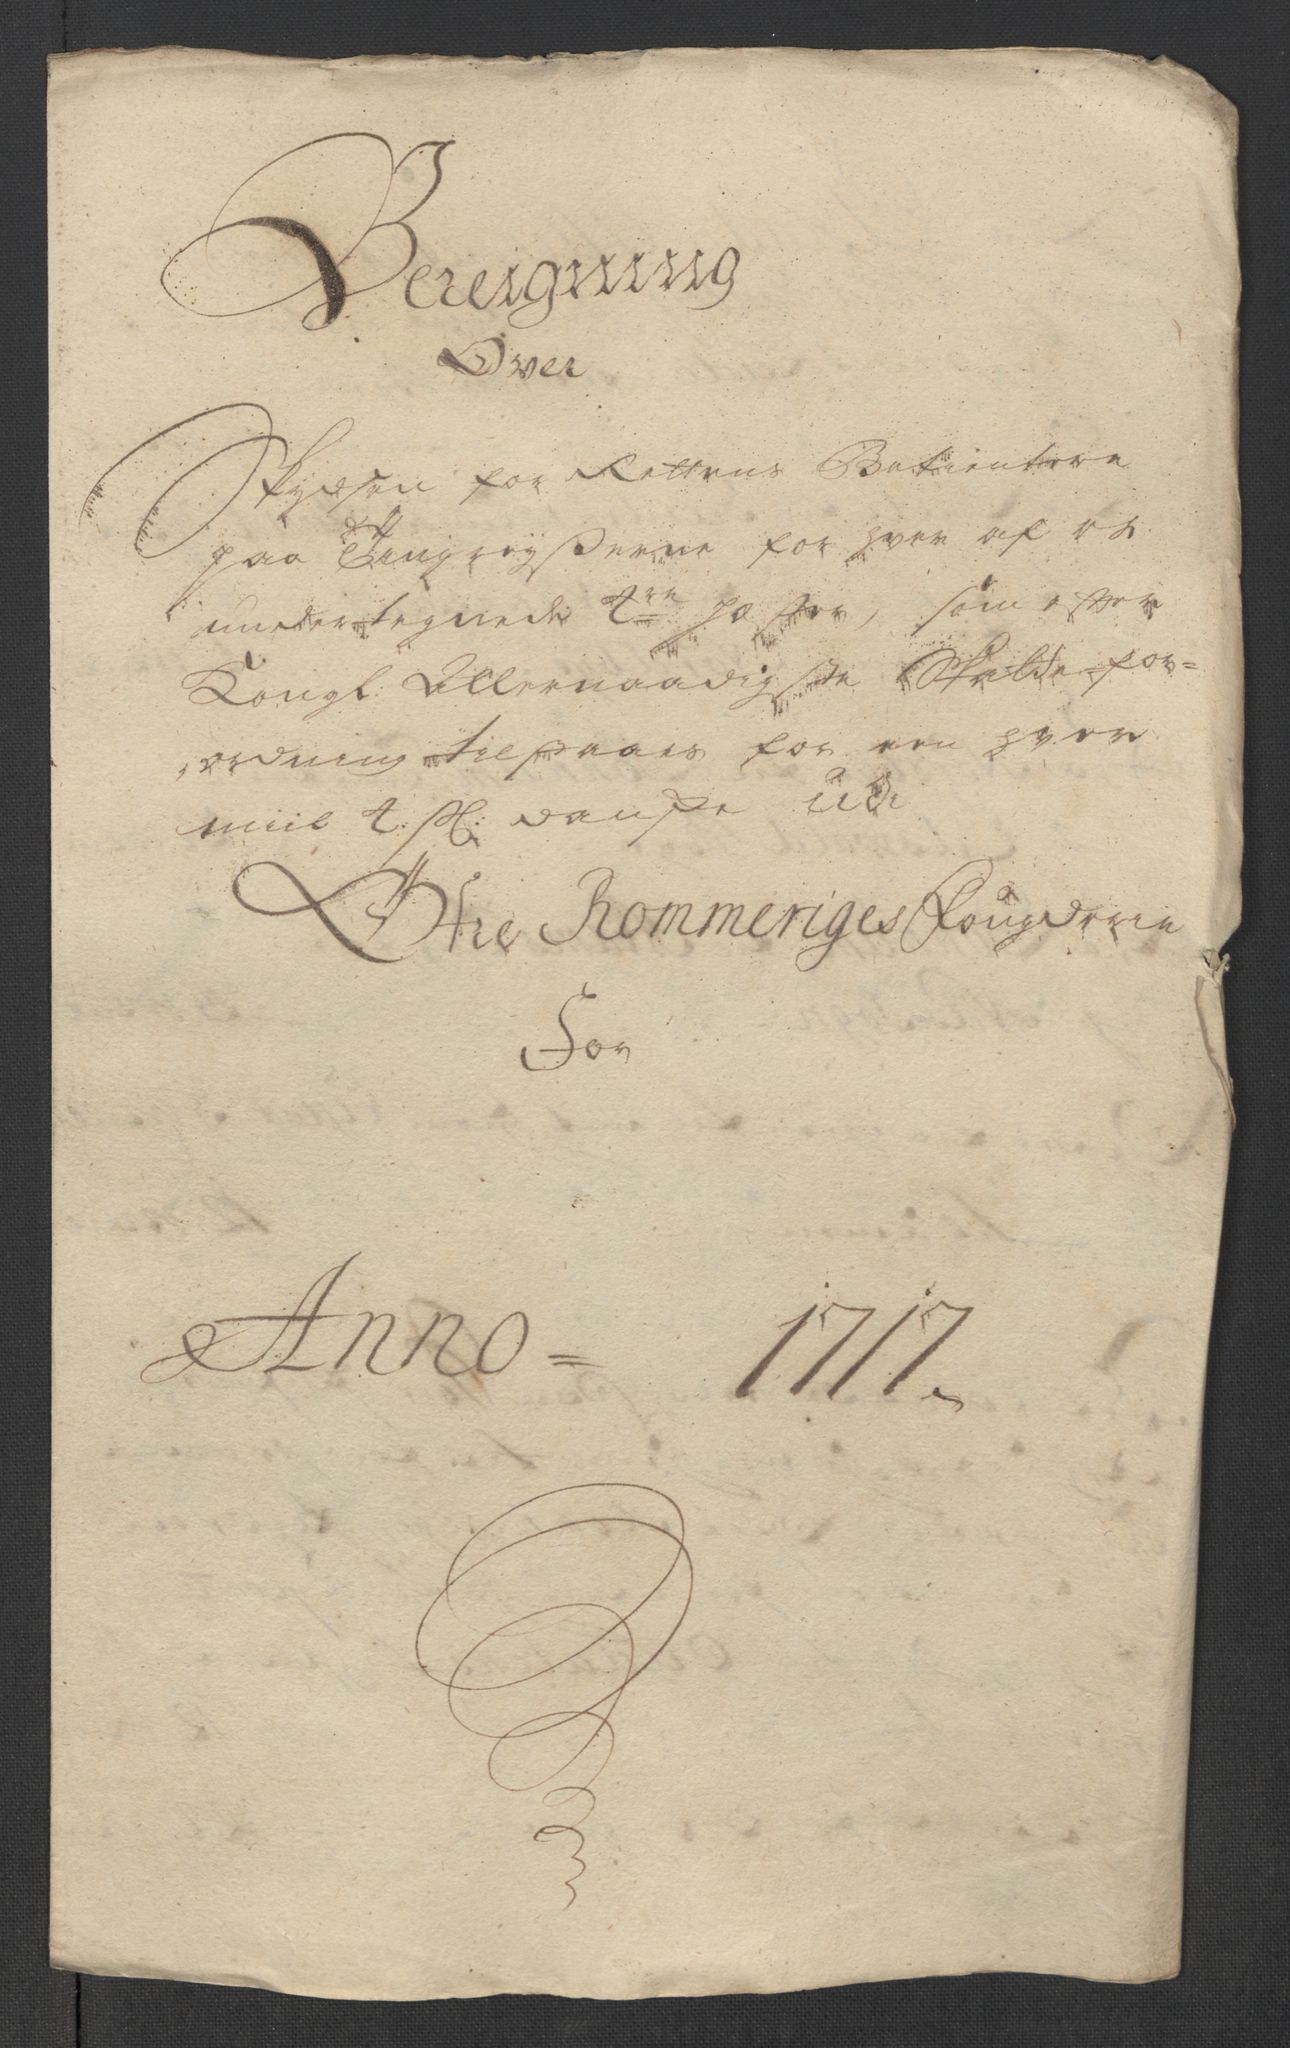 Bereigning
Over
Skydsen for Rettens Betientere
paa Tingreyserne for hver af os
undertegnede 2de hæster, som efter
Kongl Allernaadigste Skatte for=
ordning tilstaaes for een hver
miil 2 sk: danske udi
Øfre Rommeriges Fougderie
For
Anno = 1717.